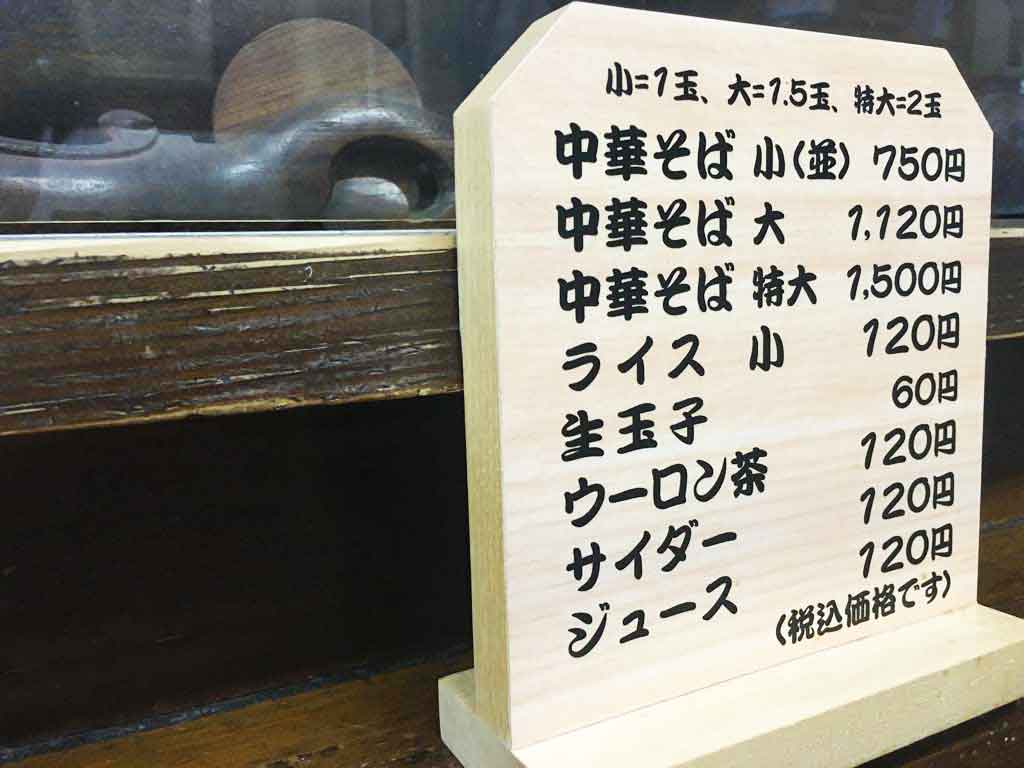 小=1玉、大=1.5玉、特大=2玉
中華そば 小(並) 750円
中華そば 大 1,120円
中華そば 特大 1,500円
ライス 小 120円
生玉子 60円
ウーロン茶 120円
サイダー 120円
ジュース 120円
(税込価格です)